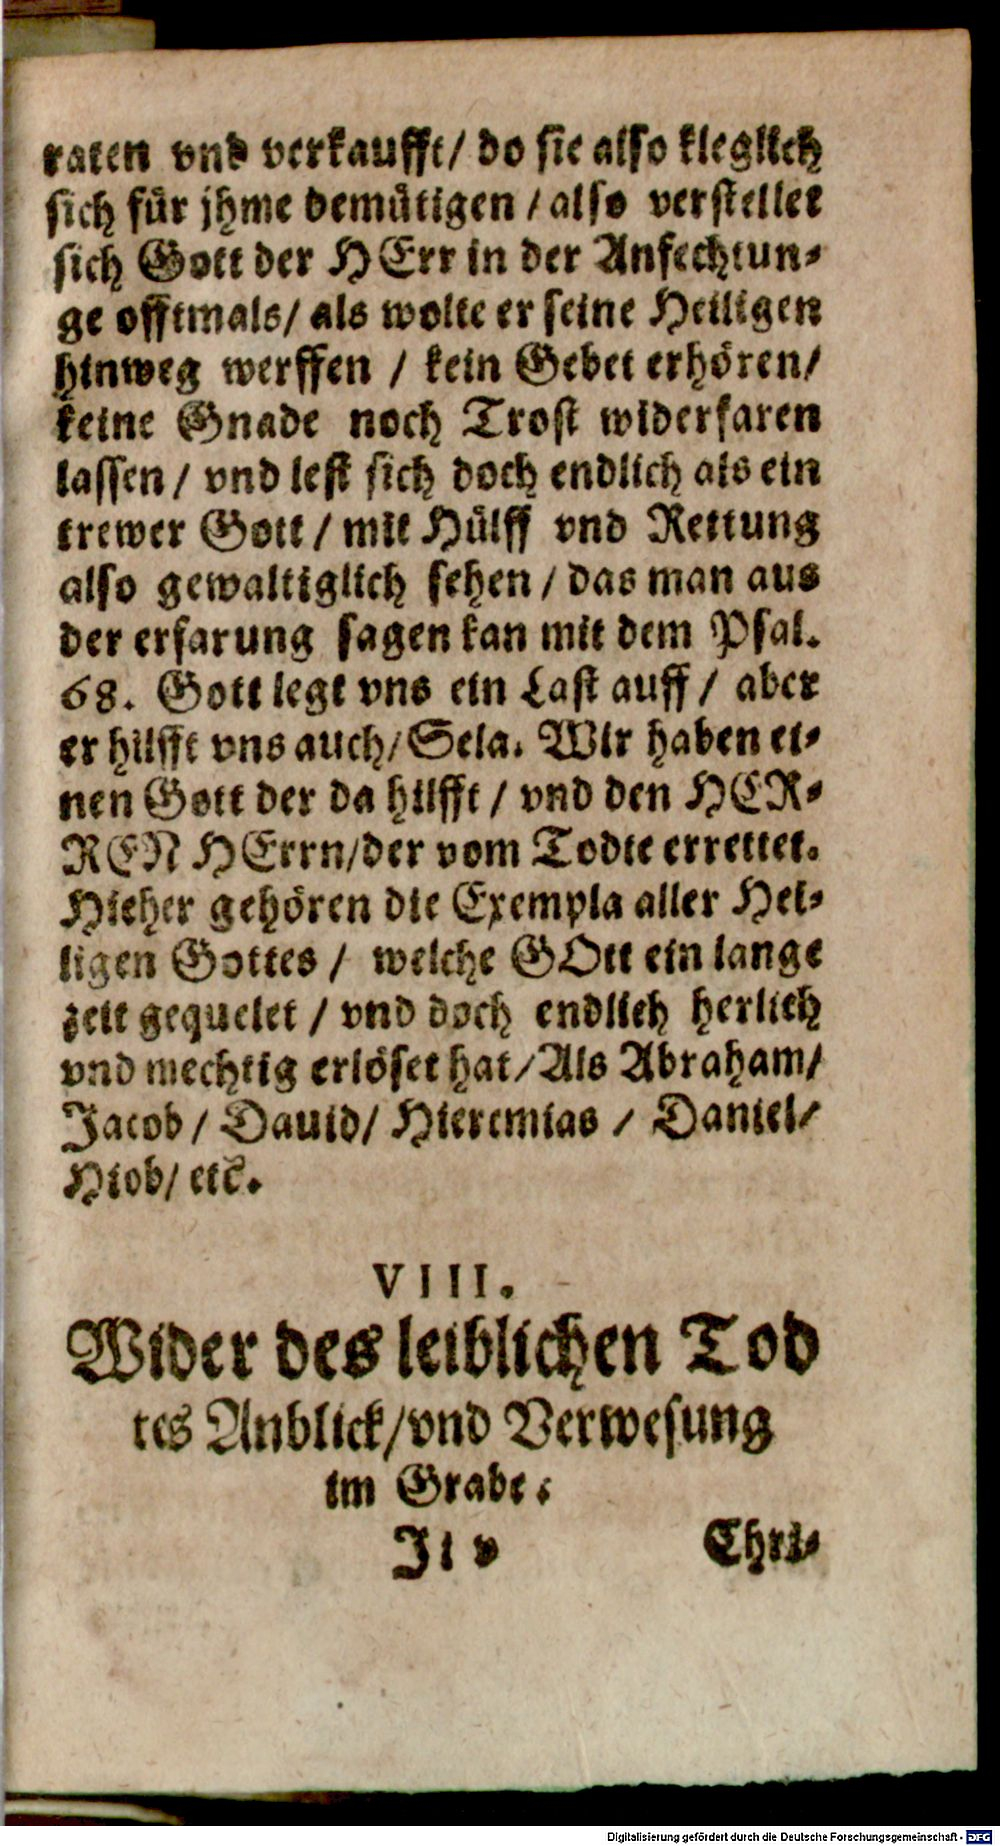 raten vnd verkaufft/ do sie also kleglich
sich für jhme demütigen / also verstellet
sich Gott der HErr in der Anfechtun-
ge offtmals/ als wolte er seine Heiligen
hinweg werffen / kein Gebet erhören/
keine Gnade noch Trost widerfaren
lassen / vnd lest sich doch endlich als ein
trewer Gott / mit Hülff vnd Rettung
also gewaltiglich sehen / das man aus
der erfarung sagen kan mit dem Psal.
68. Gott legt vns ein Last auff / aber
er hilfft vns auch/ Sela. Wir haben ei-
nen Gott der da hilfft / vnd den HER-
REN HErrn/der vom Todte errettet.
Hieher gehören die Exempla aller Hei-
ligen Gottes / welche GOtt ein lange
zeit gequelet / vnd doch endlich herlich
vnd mechtig erlöset hat/ Als Abraham/
Jacob / Dauid/ Hieremias / Daniel/
Hiob/ etc.
VIII.
Wider des leiblichen Tod
tes Anblick/vnd Verwesung
im Grabe.
Ji v Chri-
Digitalisierung gefördert durch die Deutsche Forschungsgemeinschaft - DFG